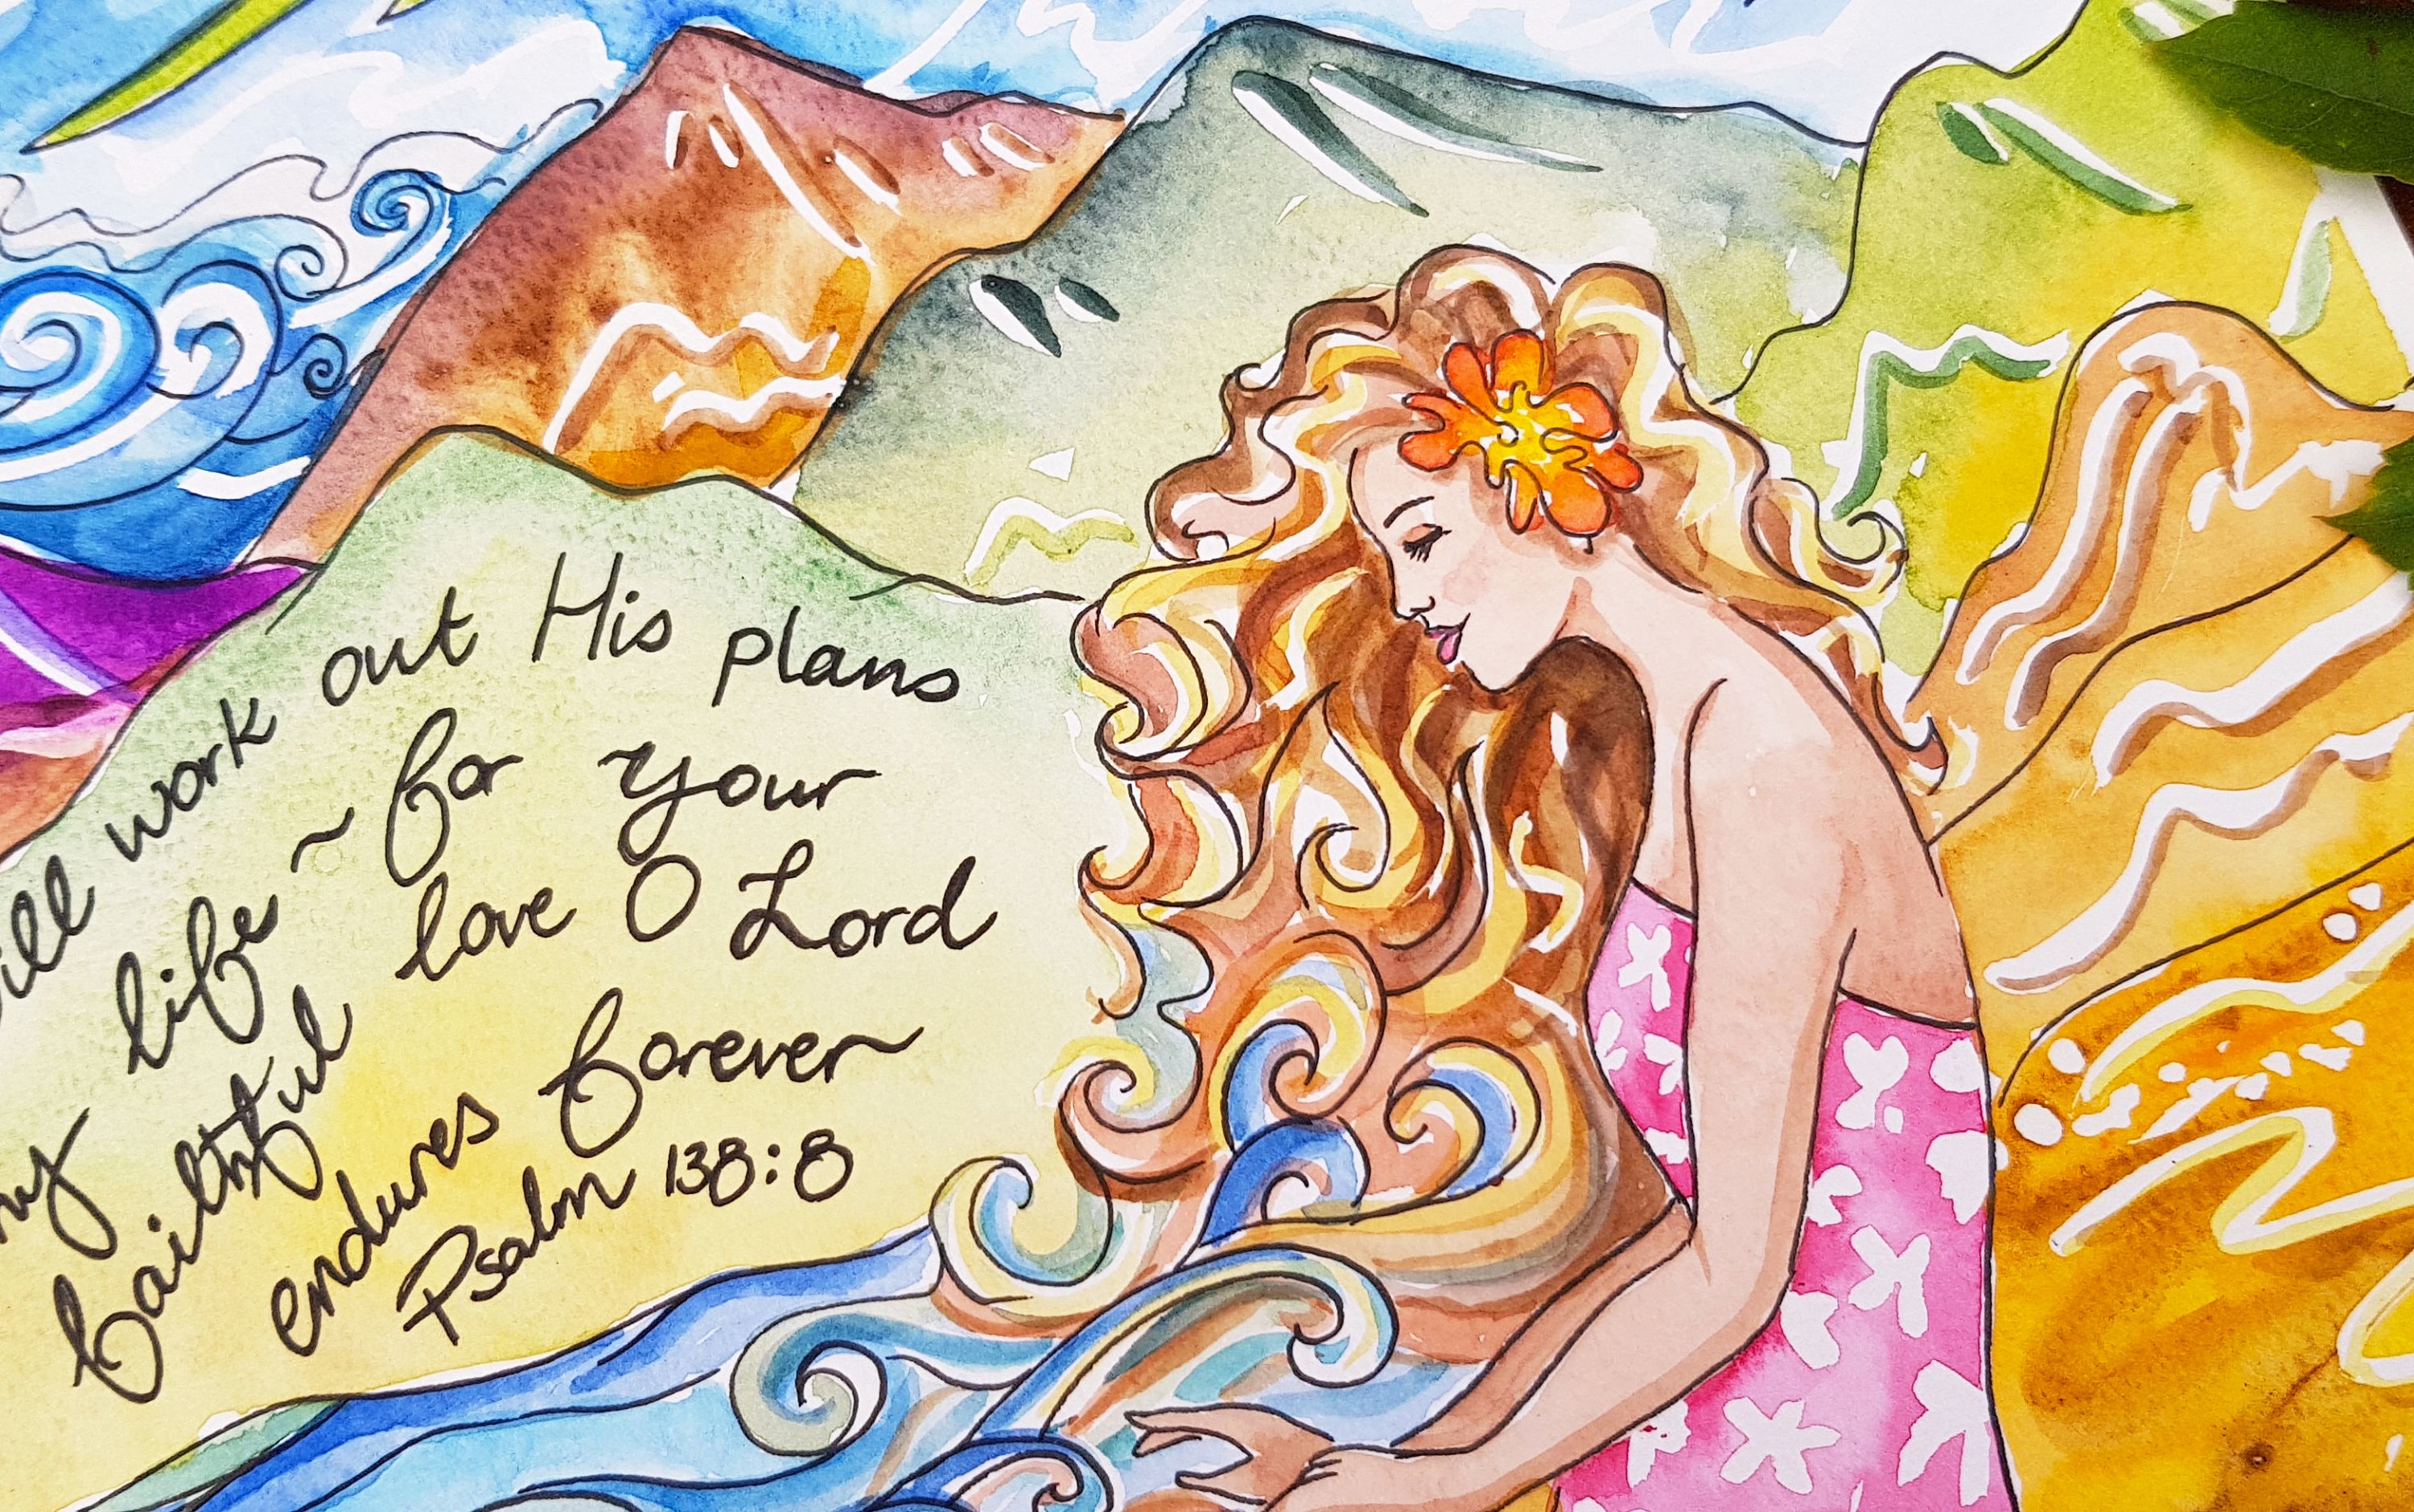 will work out His plans
my life ~ for your
faithful love O Lord
endures forever
Psalm 138:8